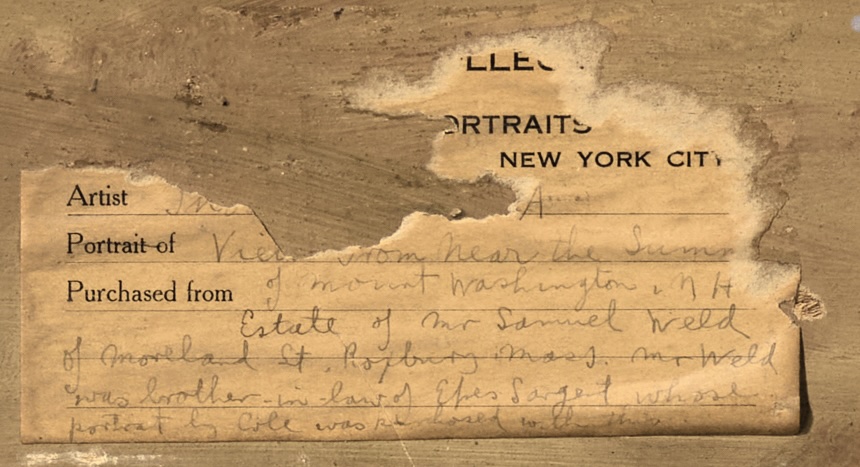 LLEC
ORTRAITS
NEW YORK CITY
Artist
Portrait of View from Near the Summ
of mount Washington, N H
Purchased from
Estate of Mr Samuel Weld
of Moreland St, Roxbury Mass. Mr Weld
was brother-in-law of Epes Sargent whose
portrait by Cole was purchased with this